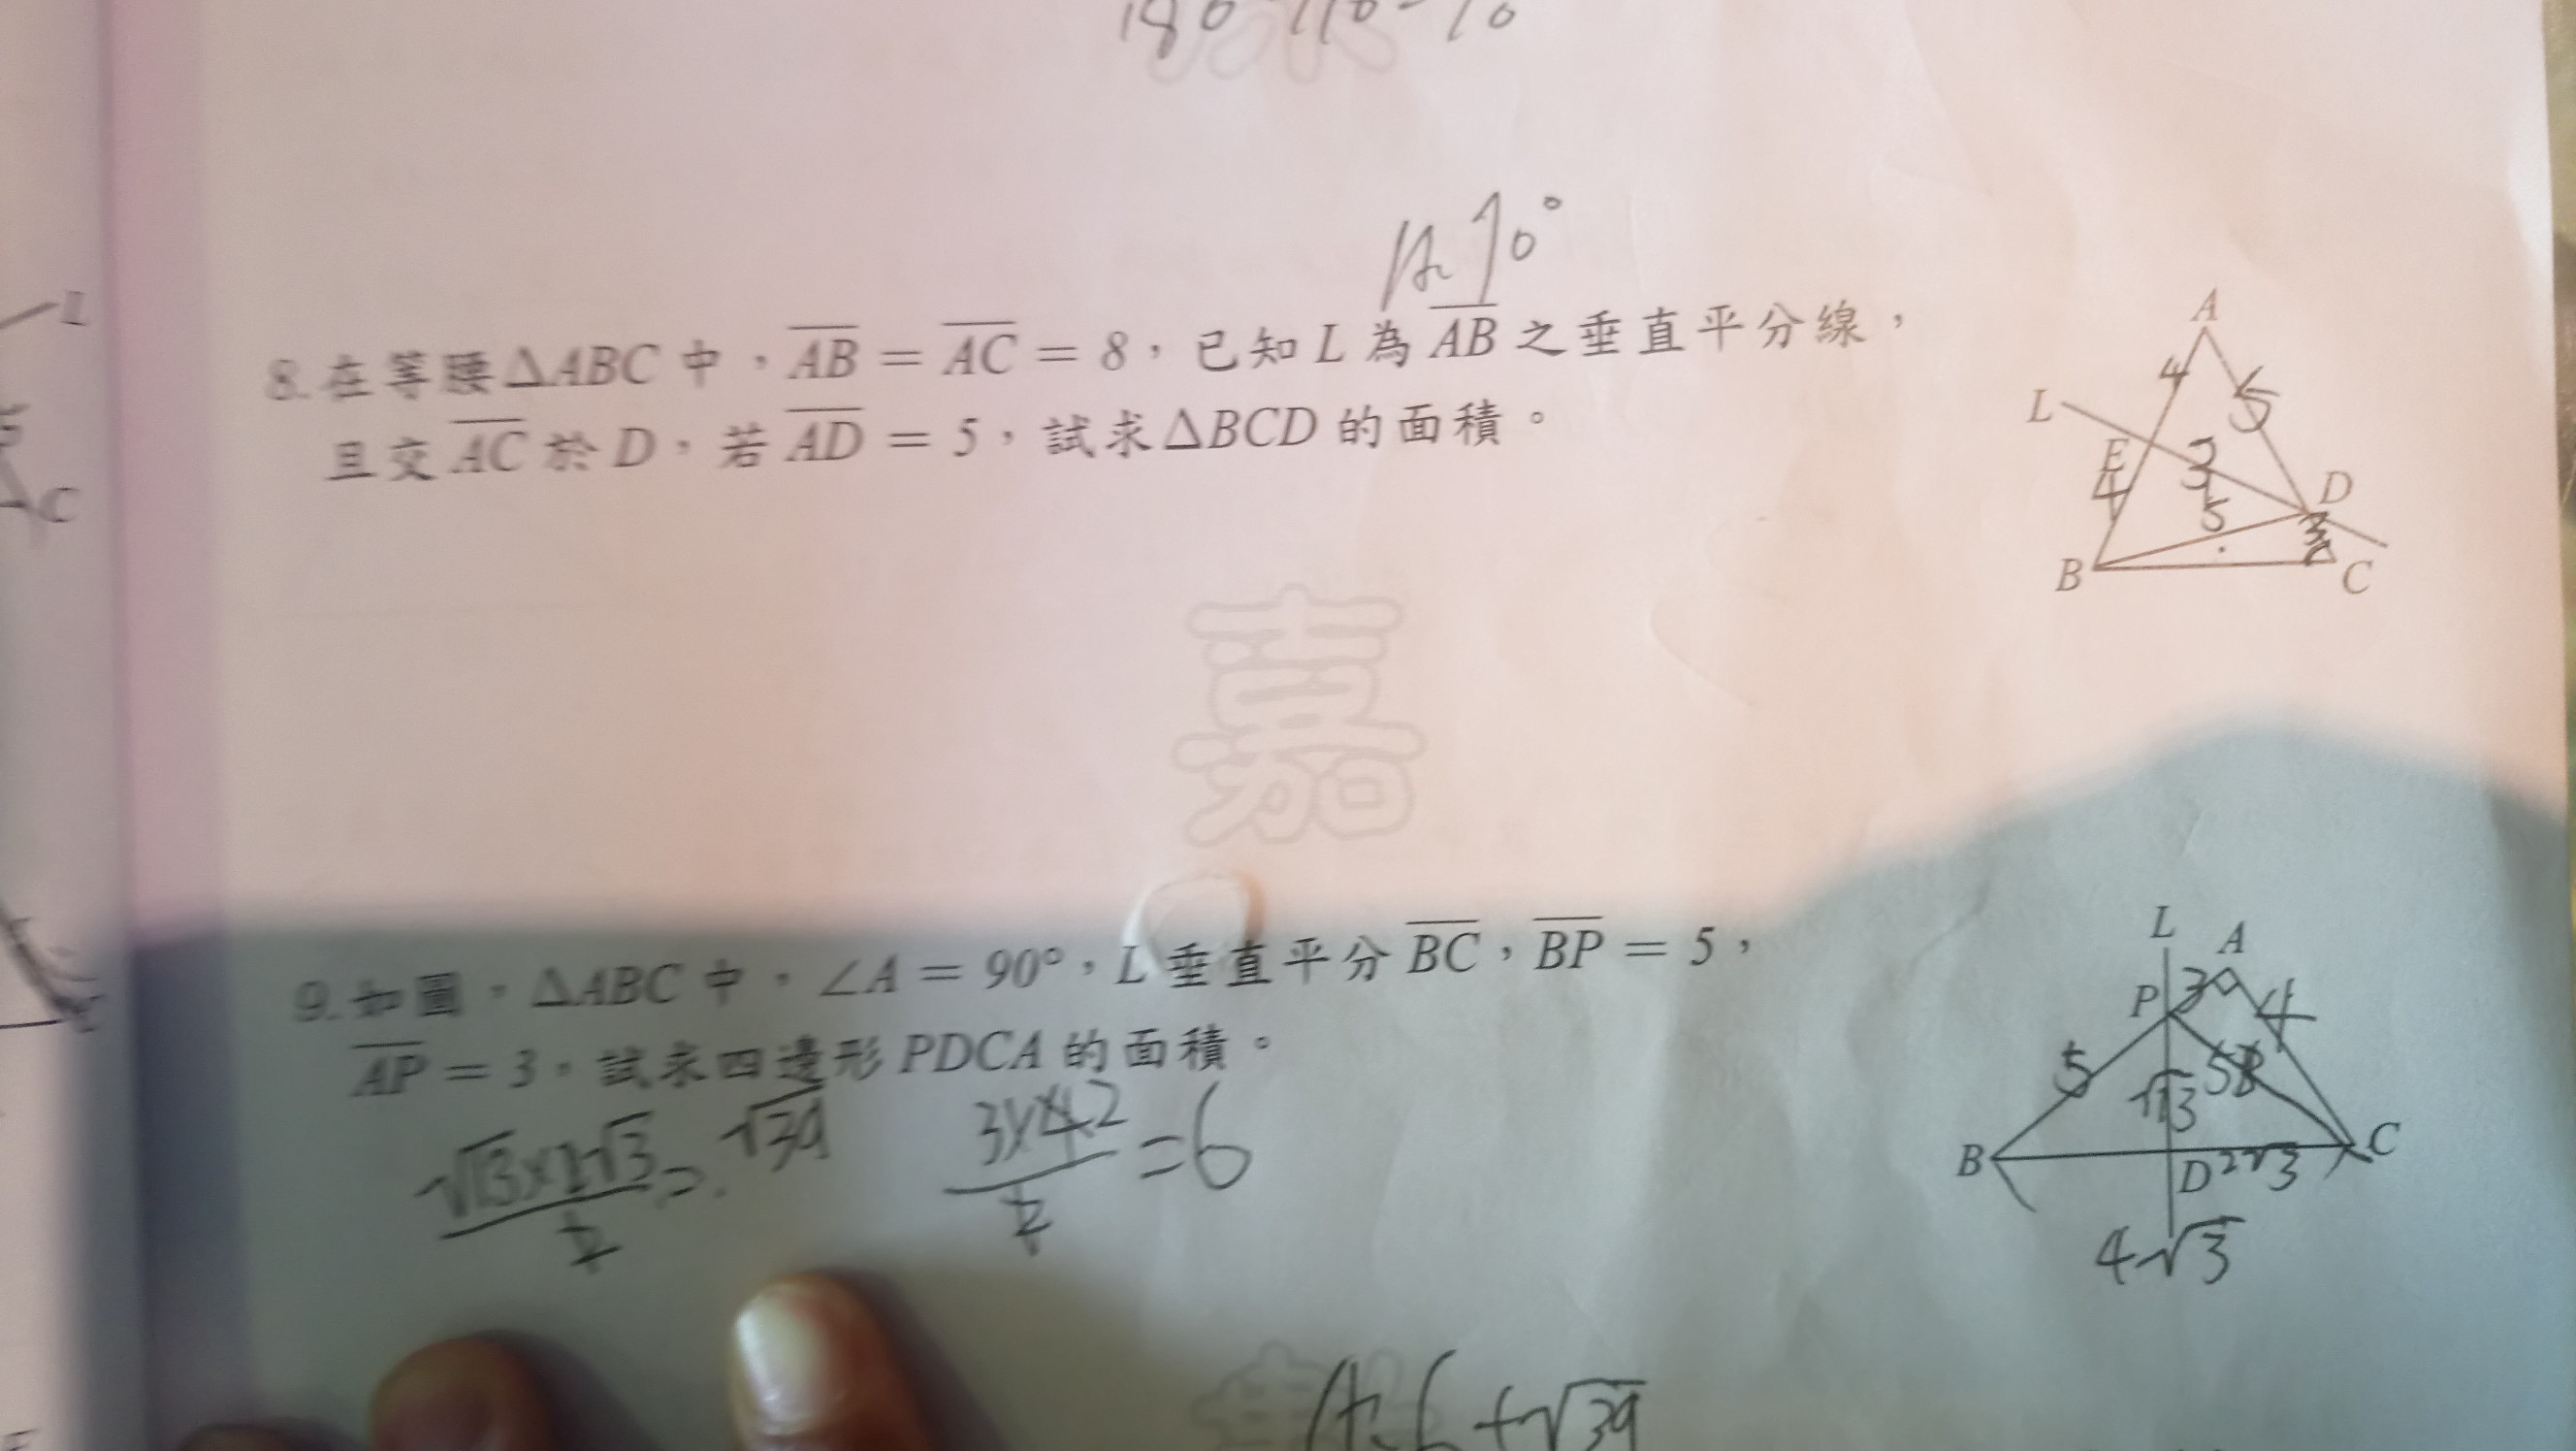 180-110=70
A: 70°
8. 在等腰△ABC 中，AB = AC = 8，已知 L 為 AB 之垂直平分線，
且交 AC 於 D，若 AD = 5，試求△BCD 的面積。
A
4
5
L
E
3
D
4
5
3
B
C
L
C
嘉
9. 如圖，△ABC 中，∠A = 90°，L 垂直平分 BC，BP = 5，
AP = 3，試求四邊形 PDCA 的面積。
√13×2√3/2 = √39
3×4 2/2 = 6
L
A
P
3
4
5
√13
5
B
D
2√3
C
4√3
A: 6+√39